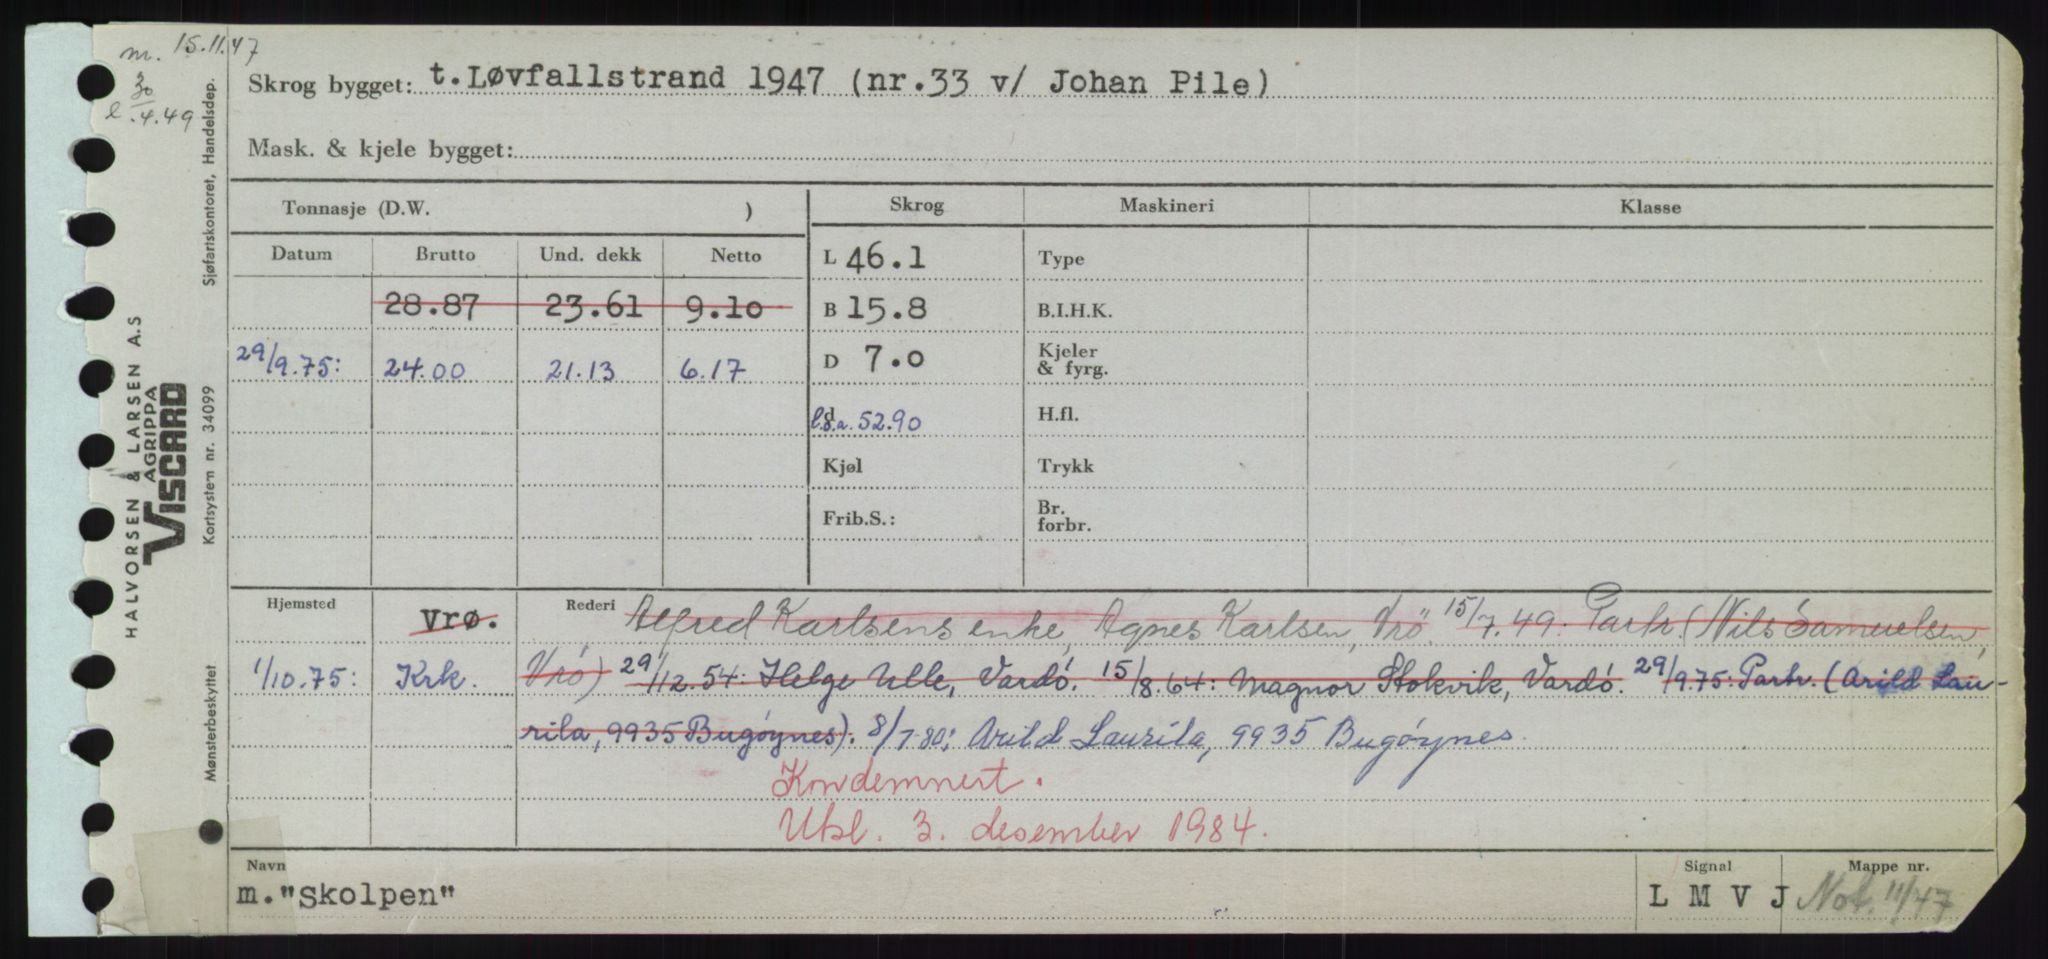 m. 15.11.47
30
l. .4.49
Skrog bygget: t. Løvfallstrand 1947 (nr.33 v/ Johan Pile)
Mask. & kjele bygget:
Tonnasje (D.W. )
Skrog
Maskineri
Klasse
Datum Brutto Und. dekk Netto
L 46.1 Type
28.87 23.61 9.10 B 15.8 B.I.H.K.
29/9.75: 24.00 21.13 6.17 D 7.0 Kjeler & fyrg.
d l.o.a. 52.90 H.fl.
Kjøl Trykk
Frib.S.: Br. forbr.
Hjemsted Vrø. Rederi Alfred Karlsens enke, Agnes Karlsen, Vrö. 15/7.49: Partr. (Nils Samuelsen,
1/10.75: Krk. Vrö) 29/12.54: Helge Ulle, Vardö. 15/8.64: Magnor Stokvik, Vardö. 29/9.75: Partr. (Arild Lau-
rila, 9935 Bugöynes). 8/7.80: Arild Laurila, 9935 Bugöynes.
Kondemnert.
Utsl. 3. desember 1984.
Navn Signal Mappe nr.
m."Skolpen" L M V J Not. 11/47
HALVORSEN & LARSEN A.S
AGRIPPA
VISCARD
Mønsterbeskyttet Kortsystem nr. 34099 Sjøfartskontoret, Handelsdep.